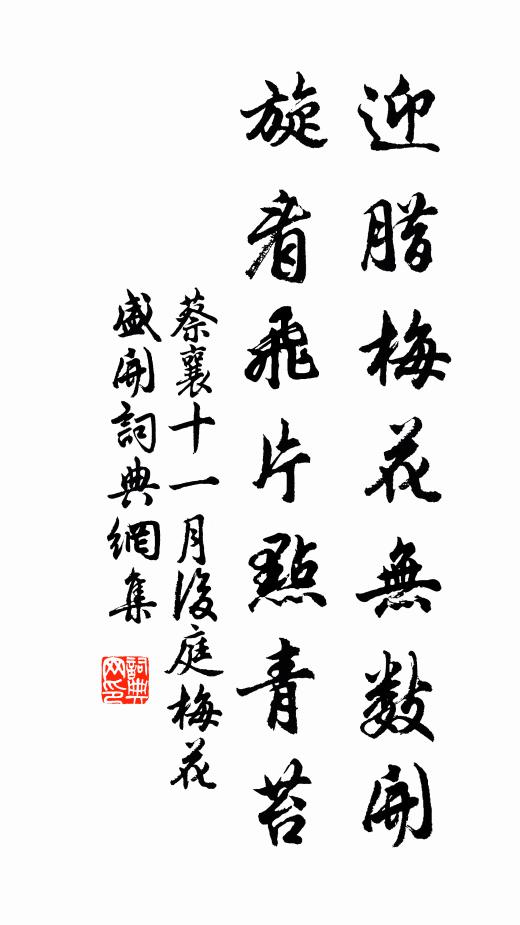 迎腊梅花無數開
旋看飛片點青苔
蔡襄十一月後庭梅花
盛開詞典網集
詞典
网印